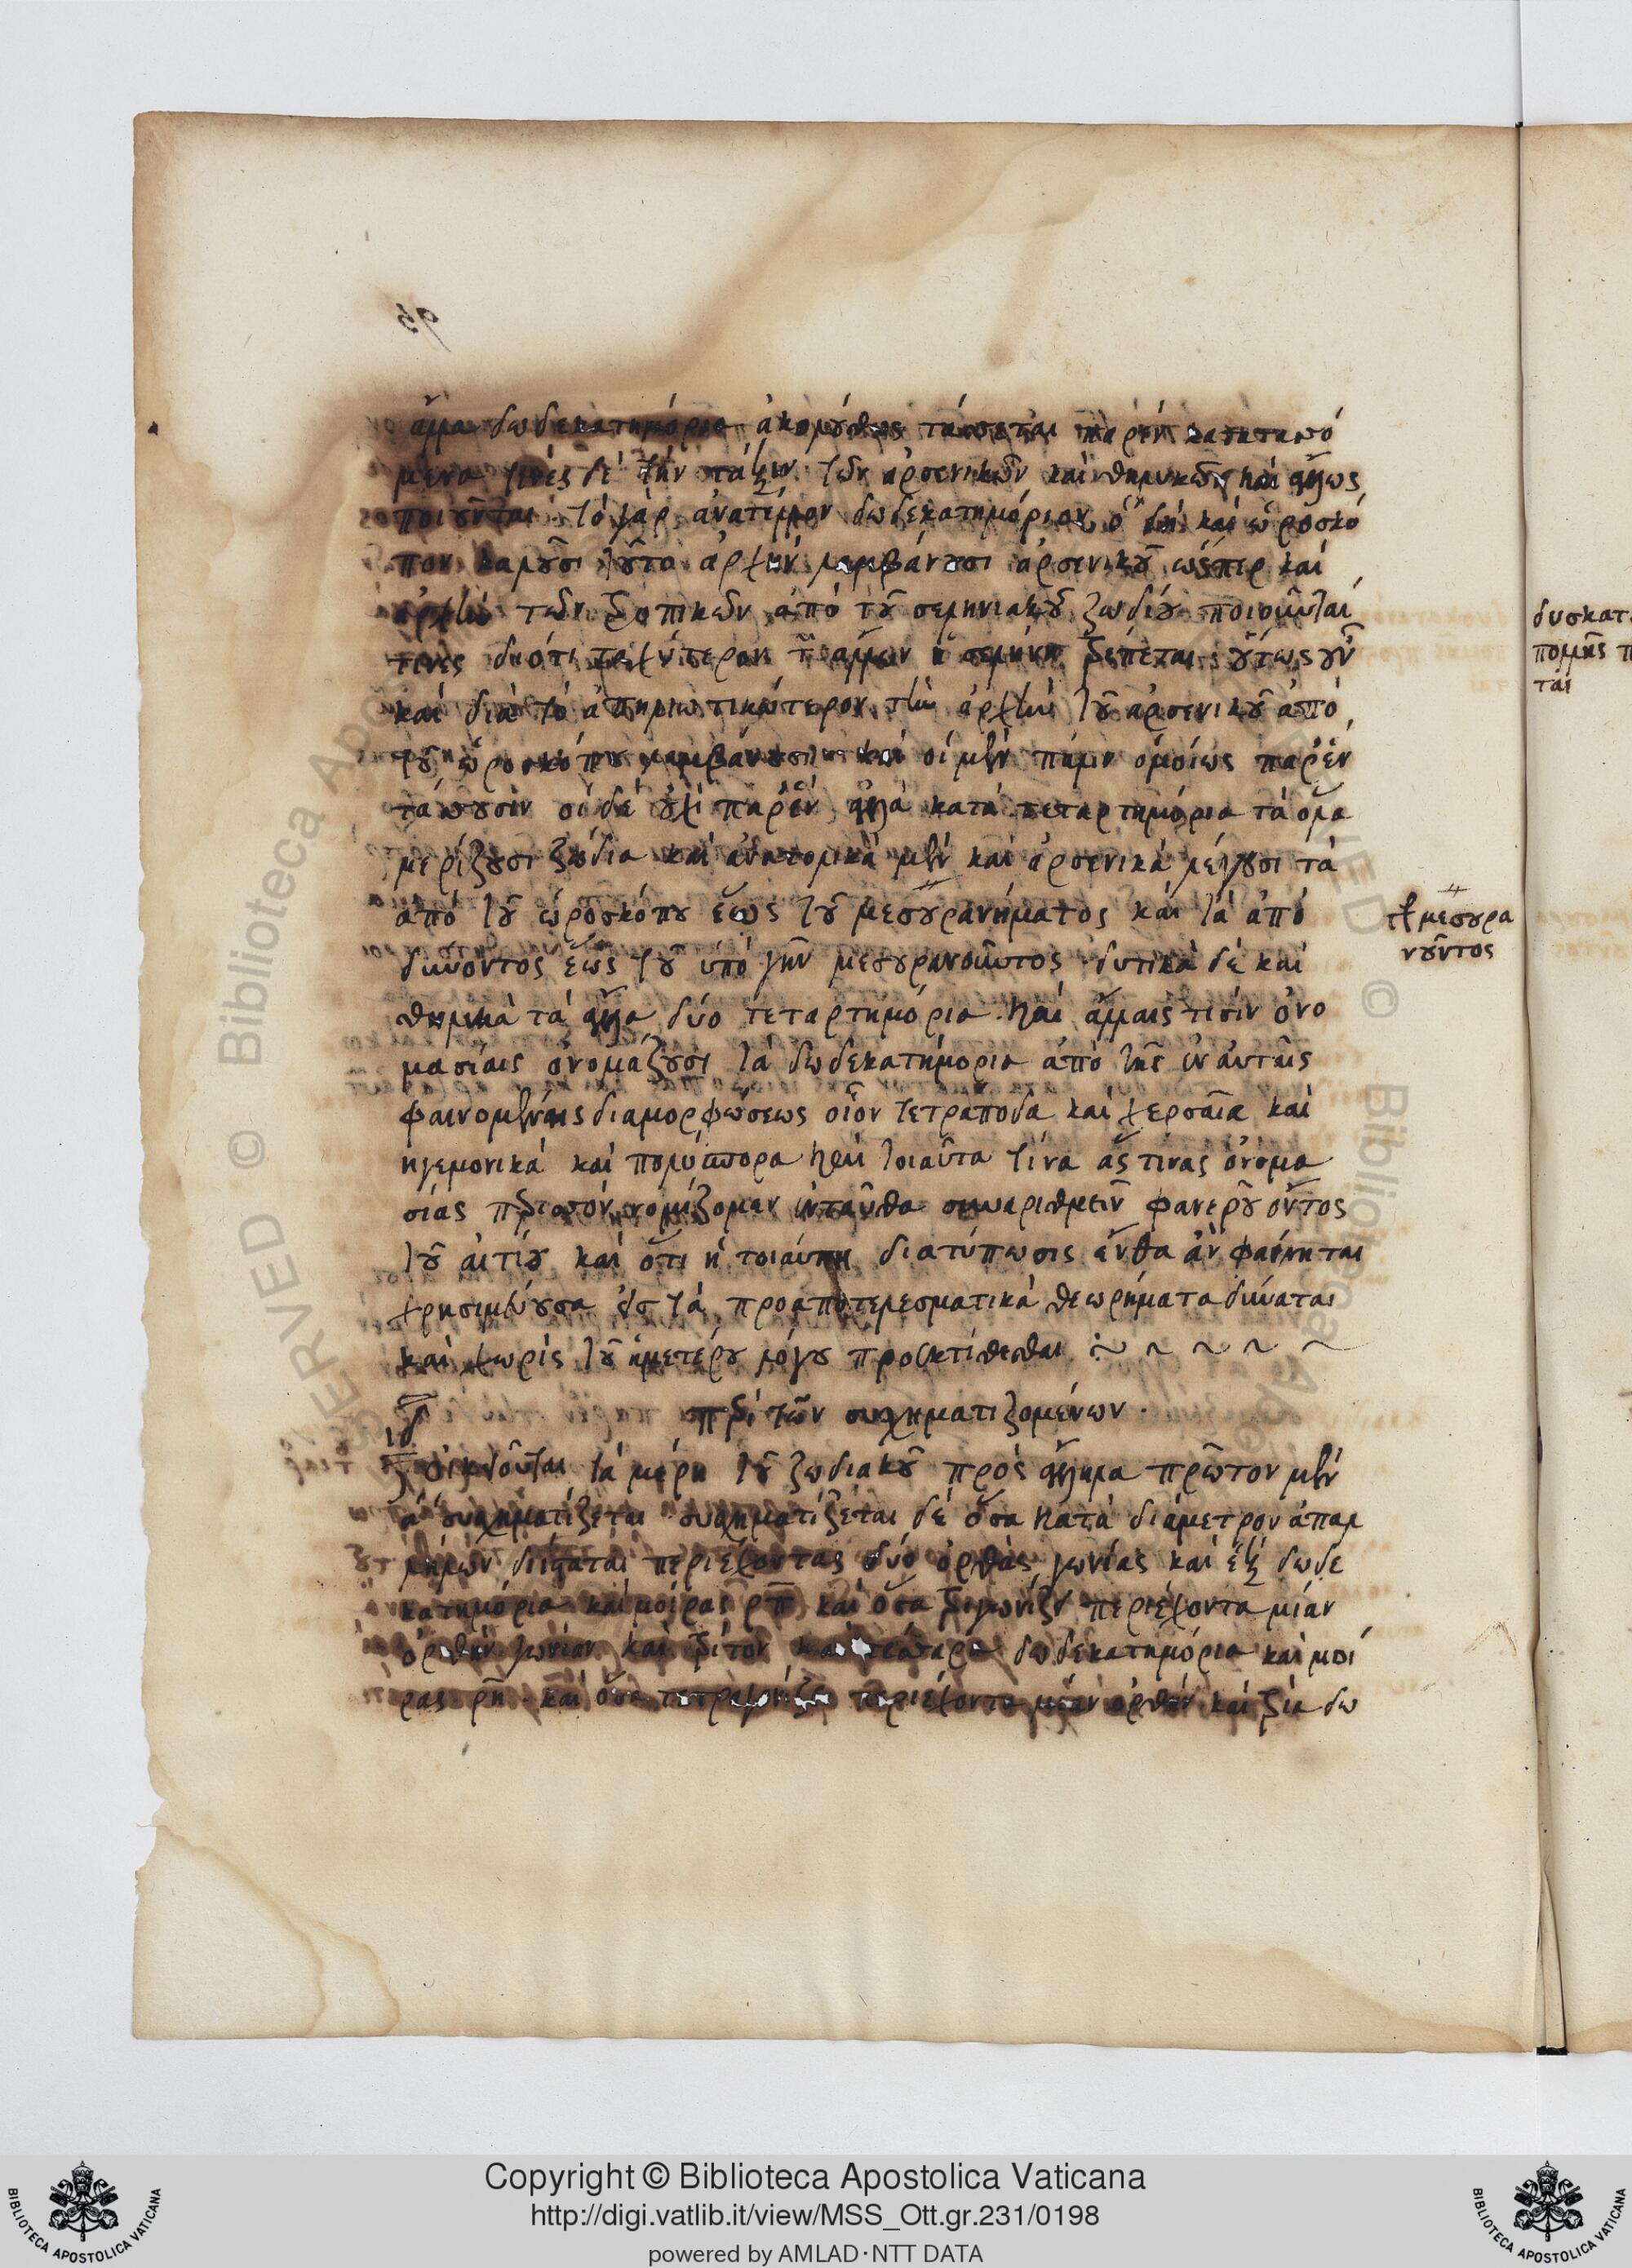 95
ἄλλα δωδεκατημόρια ἀκολούθως τάσσεται παρ' ἓν κατατασσό
μενα τινὲς δὲ τὴν τάξιν τῶν ἀρσενικῶν καὶ θηλυκῶν καὶ ἄλλως
ποιοῦνται τὸ γὰρ ἀνατέλλον δωδεκατημόριον ὃ δὴ καὶ ὡροσκό
πον καλοῦσι τοῦτο ἀρχὴν λαμβάνουσι ἀρσενικοῦ ὥσπερ καὶ
ἀρχὴν τῶν τροπικῶν ἀπὸ τοῦ σεληνιακοῦ ζωδίου ποιοῦνται
τινὲς διότι ταχύτερον τῶν ἄλλων ἡ σελήνη τρέπεται οὕτως οὖν
καὶ διὰ τὸ ἀπηλιωτικώτερον τὴν ἀρχὴν τοῦ ἀρσενικοῦ ἀπὸ
τοῦ ὡροσκόπου λαμβάνουσι καὶ οἱ μὲν πάλιν ὁμοίως παρ' ἓν
τάσσουσιν οἱ δὲ οὐχὶ παρ' ἓν ἀλλὰ κατὰ τεταρτημόρια τὰ ὅλα
μερίζουσι ζώδια καὶ ἀνατολικὰ μὲν καὶ ἀρσενικὰ λέγουσι τὰ
ἀπὸ τοῦ ὡροσκόπου ἕως τοῦ μεσουρανήματος καὶ τὰ ἀπὸ
δύνοντος ἕως τοῦ ὑπὸ γῆν μεσουρανοῦντος δυτικὰ δὲ καὶ
θηλυκὰ τὰ ἄλλα δύο τεταρτημόρια. καὶ ἄλλαις τισὶν ὀνο
μασίαις ὀνομάζουσι τὰ δωδεκατημόρια ἀπὸ τῆς ἐν αὐτοῖς
φαινομένης διαμορφώσεως οἷον τετράποδα καὶ χερσαῖα καὶ
ἡγεμονικὰ καὶ πολύσπορα καὶ τοιαῦτα τινὰ ἅς τινας ὀνομα
σίας περισσὸν νομίζομεν ἐνταῦθα συναριθμεῖν φανεροῦ ὄντος
τοῦ αἰτίου καὶ ὅτι ἡ τοιαύτη διατύπωσις ἔνθα ἂν φαίνηται
χρησιμεύουσα εἰς τὰ προαποτελεσματικὰ θεωρήματα δύναται
καὶ χωρὶς τοῦ ἡμετέρου λόγου προσεκτίθεσθαι :~ ~ ~ ~ ~
ιδ περὶ τῶν συσχηματιζομένων .
οἰκειοῦται τὰ μέρη τοῦ ζωδιακοῦ πρὸς ἄλληλα πρῶτον μὲν
ἃ συσχηματίζεται. συσχηματίζεται δὲ ὅσα κατὰ διάμετρον ἀπαλ
λήλων διίσταται περιέχοντας δύο ὀρθὰς γωνίας καὶ ἓξ δωδε
κατημόρια καὶ μοίρας ρπ καὶ ὅσα τριγωνίζει περιέχοντα μίαν
ὀρθὴν γωνίαν καὶ τρίτον καὶ τέσσαρα δωδεκατημόρια καὶ μοί
ρας ρκ. καὶ ὅσα τετραγωνίζει περιέχοντα μίαν ὀρθὴν καὶ τρία δω
τοῦ μεσουρα
νοῦντος
δυσκατ
πολλῆς π
ται
Copyright © Biblioteca Apostolica Vaticana
http://digi.vatlib.it/view/MSS_Ott.gr.231/0198
powered by AMLAD·NTT DATA
BIBLIOTECA APOSTOLICA VATICANA
BIBLIOTECA APOSTOLICA VATICANA